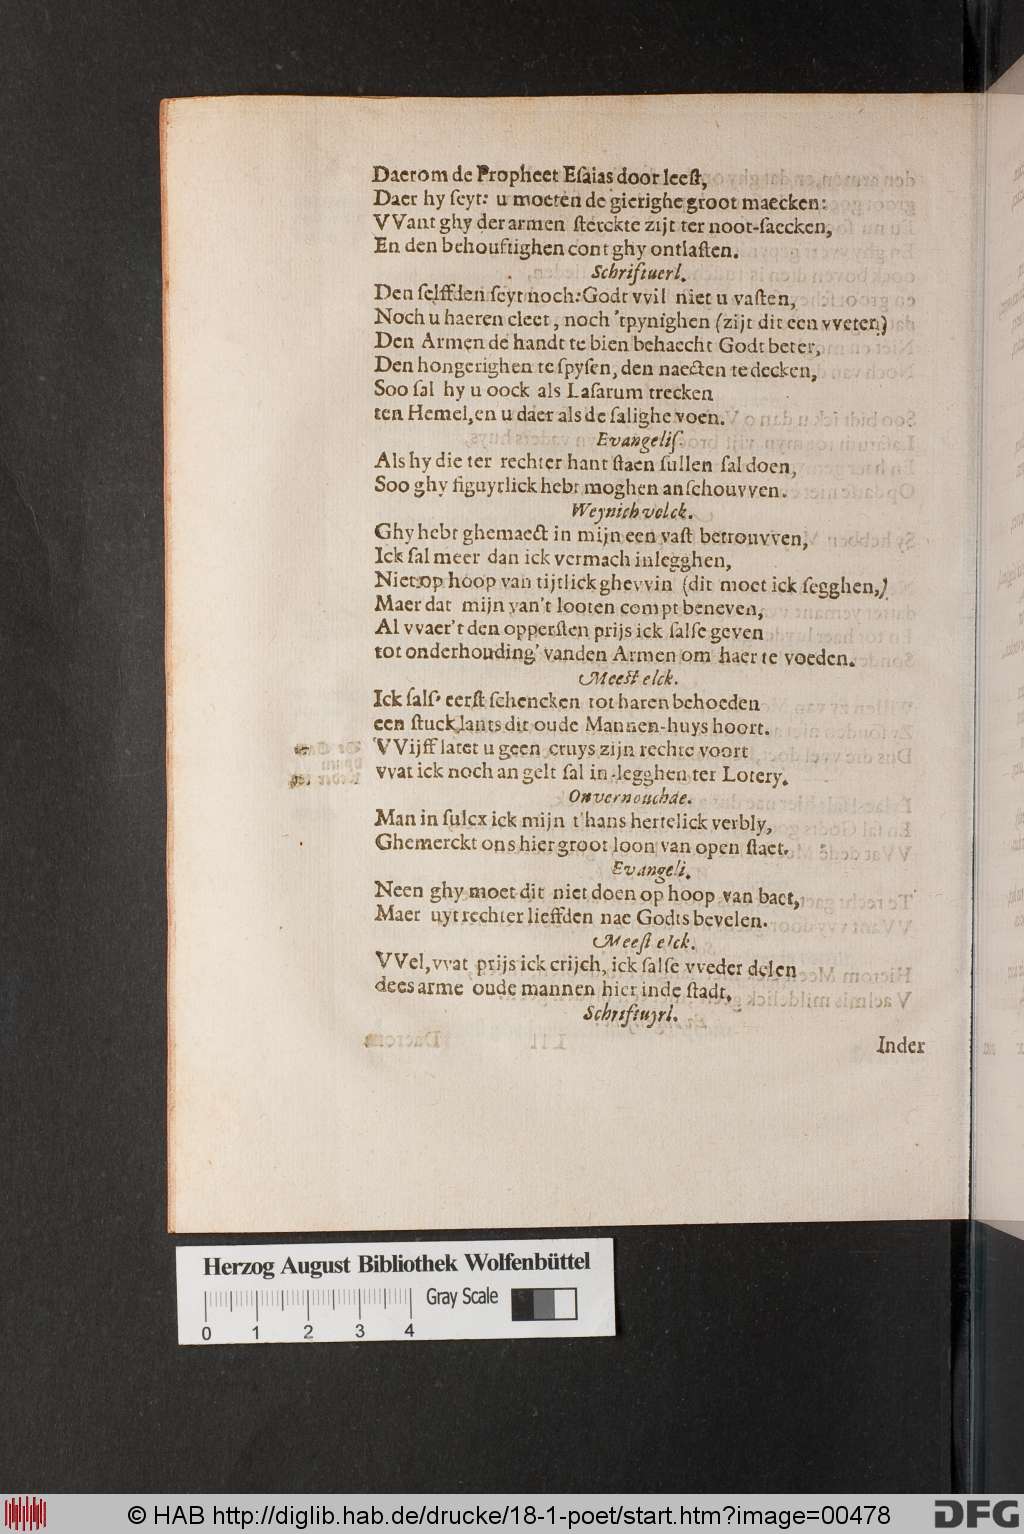 Daerom de Propheet Eſaias door leeſt,
Daer hy ſeyt: u moeten de gierighe groot maecken:
VVant ghy der armen ſterckte zijt ter noot-ſaecken,
En den behouftighen cont ghy ontlaſten.
Schriftuerl.
Den ſelffden ſeyt noch: Godt vvil niet u vaſten,
Noch u haeren cleet, noch 'tpynighen (zijt dit een vveter)
Den Armen de handt te bien behaecht Godt beter,
Den hongerighen te ſpyſen, den naecten te decken,
Soo ſal hy u oock als Laſarum trecken
ten Hemel, en u daer als de ſalighe voen.
Evangeliſ.
Als hy die ter rechter hant ſtaen ſullen ſal doen,
Soo ghy figuyrlick hebt moghen anſchouvven.
Weynich volck.
Ghy hebt ghemaect in mijn een vaſt betrouvven,
Ick ſal meer dan ick vermach inlegghen,
Niet op hoop van tijtlick ghevvin (dit moet ick ſegghen,)
Maer dat mijn van't looten compt beneven,
Al vvaer't den opperſten prijs ick ſalſe geven
tot onderhouding' vanden Armen om haer te voeden.
Meeſt elck.
Ick ſalſ' eerſt ſchencken tot haren behoeden
een ſtuck lants dit oude Mannen-huys hoort.
VVijff latet u geen cruys zijn rechte voort
vvat ick noch an gelt ſal in-legghen ter Lotery.
Onvernouchde.
Man in ſulcx ick mijn t'hans hertelick verbly,
Ghemerckt ons hier groot loon van open ſtaet.
Evangeli.
Neen ghy moet dit niet doen op hoop van baet,
Maer uyt rechter lieffden nae Godts bevelen.
Meeſt elck.
VVel, vvat prijs ick crijch, ick ſalſe vveder delen
dees arme oude mannen hier inde ſtadt.
Schriftuyrl.
Inder
Herzog August Bibliothek Wolfenbüttel
Gray Scale
0 1 2 3 4
© HAB http://diglib.hab.de/drucke/18-1-poet/start.htm?image=00478
DFG